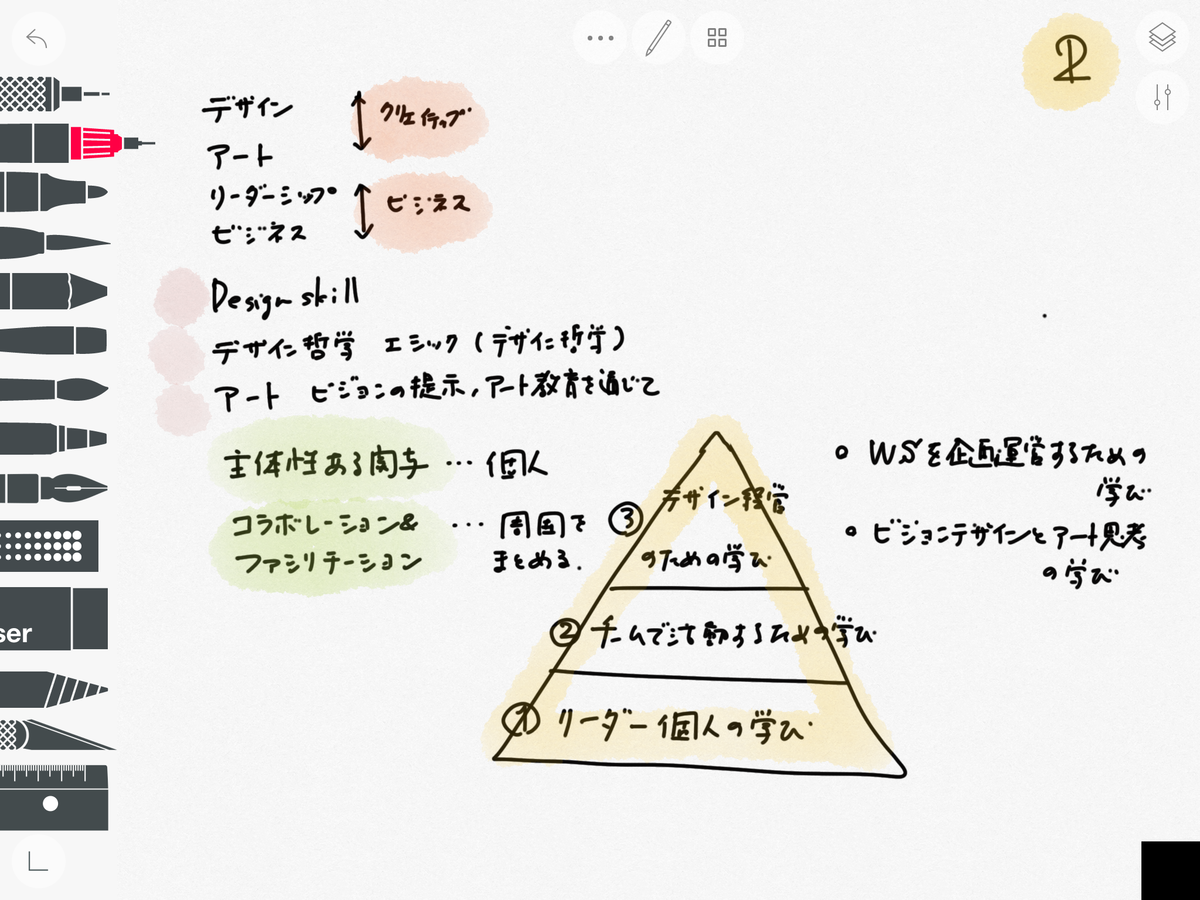 2
デザイン
クリエイティブ
アート
リーダーシップ
ビジネス
ビジネス
Design skill
デザイン哲学 エシック (デザイン哲学)
アート ビジョンの提示, アート教育を通じて
主体性ある関与 … 個人
コラボレーション& … 周囲を
ファシリテーション まとめる.
③ デザイン経営
のための学び
② チームで活動するための学び
① リーダー個人の学び
○ WSを企画運営するための
学び
○ ビジョンデザインとアート思考
の学び
ser